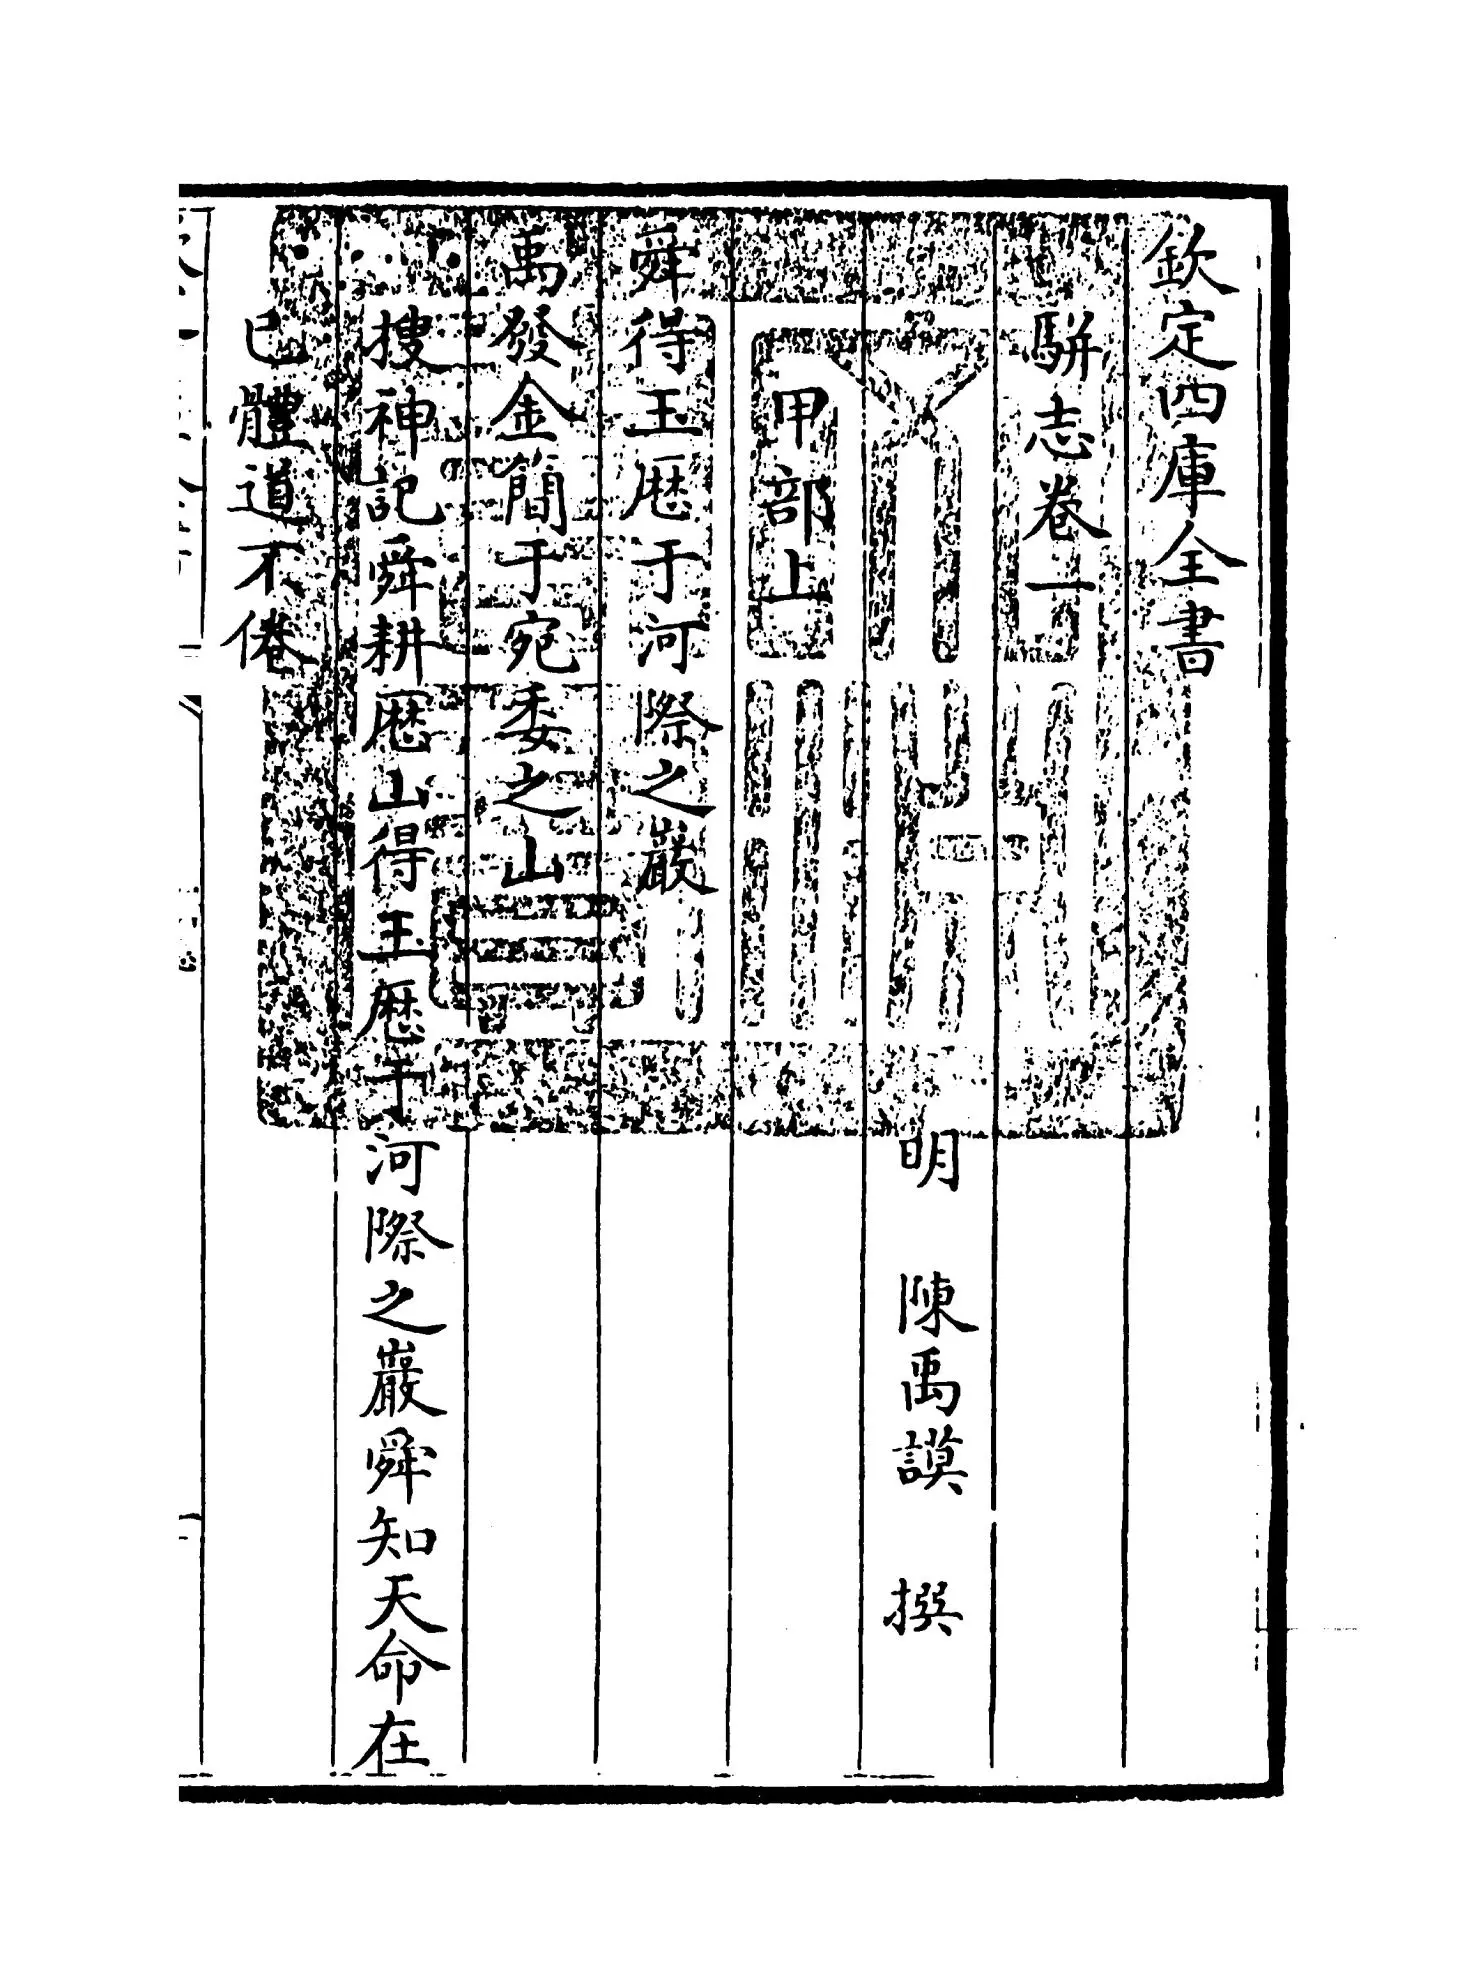 欽定四庫全書
駢志卷一
明 陳禹謨 撰
甲部上
舜得玉厯于河際之巖
禹發金簡于宛委之山
搜神記舜耕厯山得玉厯于河際之巖舜知天命在
已體道不倦